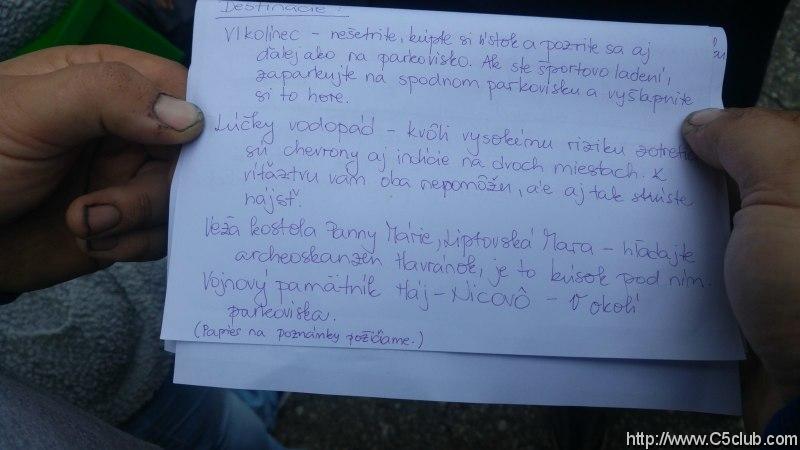 Destinácie:
Vlkolínec - nešetrite, kúpte si lístok a pozrite sa aj
ďalej ako na parkovisko. Ak ste športovo ladení,
zaparkujte na spodnom parkovisku a vyšlapnite
si to hore.
Lúčky vodopád - kvôli vysokému riziku zotretia
sú chevrony aj indície na dvoch miestach. K
víťazstvu vám oba nepomôžu, ale aj tak skúste
nájsť.
Veža kostola Panny Márie, Liptovská Mara - hľadajte
archeoskanzen Havránok, je to kúsok pod ním.
Vojnový pamätník Háj - Nicovô - v okolí
parkoviska.
(Papier na poznámky požičiame.)
http://www.C5club.com